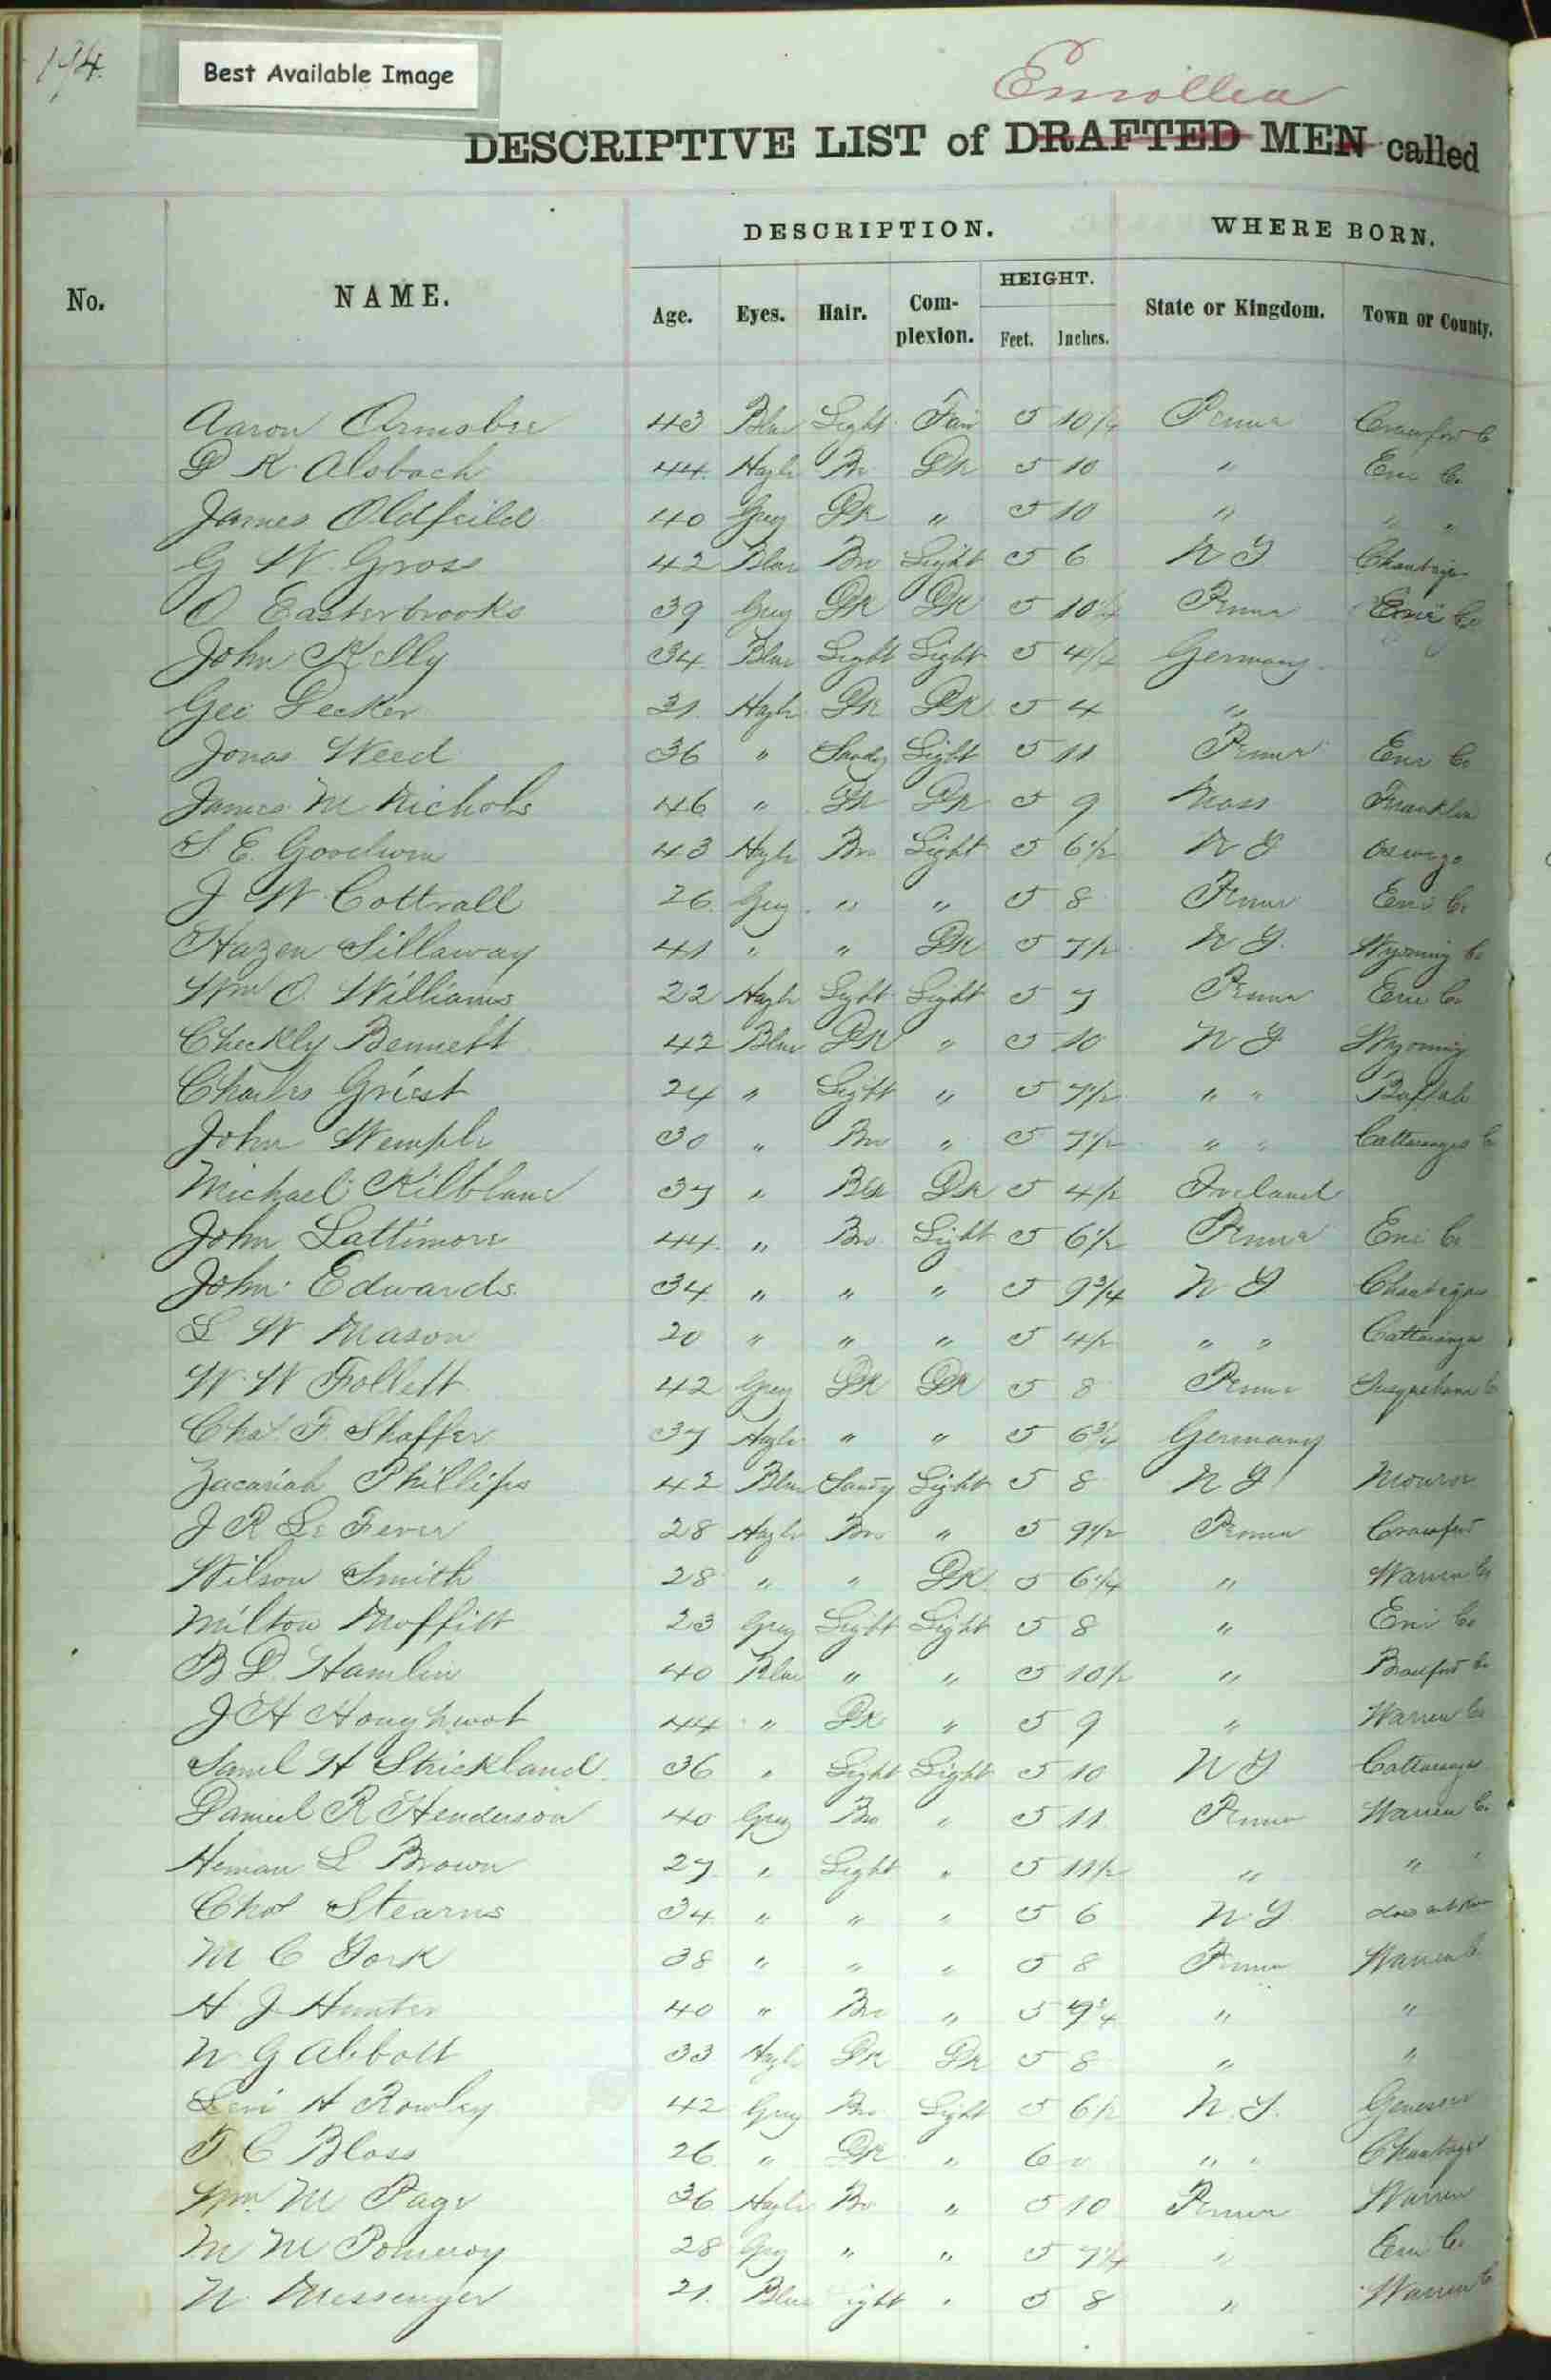 194.
Best Available Image
Enrolled
DESCRIPTIVE LIST of DRAFTED MEN called
DESCRIPTION. WHERE BORN.
No. NAME. Age. Eyes. Hair. Com-plexion. HEIGHT. Feet. Inches. State or Kingdom. Town or County.
Aaron Ormsbee 43 Blue Light Fair 5 10 1/4 Penna Crawford Co
D K Alsbach 44 Hazle Br DK 5 10 " Erie Co.
James Oldfeild 40 Grey DK " 5 10 " " "
G W. Gross 42 Blue Bro Light 5 6 N Y
O Easterbrooks 39 Grey DK DK 5 10 1/4 Penna Erie Co
John Kelly 34 Blue Light Light 5 4 1/4 Germany
Geo Decker 31 Hazle DK DK 5 4 "
Jonas Weed 36 " Sandy Light 5 11 Penna Erie Co
James M Nichols 46 " DK DK 5 9 Mass Franklin
S. E. Goodwin 43 Hazle Bro Light 5 6 1/2 N Y Oswego
J W Cottrall 26 Grey " " 5 8 Penna Erie Co
Hazen Sillaway 41 " " DK 5 7 1/2 N Y. Wyoming Co
Wm O. Williams 22 Hazle Light Light 5 7 Penna Erie Co
Checkly Bennett 42 Blue DK " 5 10 N Y Wyoming
Charles Griest 24 " Light " 5 7 1/2 " " Buffalo
John Wemple 30 " Bro " 5 7 1/2 " " Cattaraugus Co
Michael Kilblane 37 " Blk DK 5 4 1/2 Ireland
John Lattimore 44 " Bro Light 5 6 1/2 Penna Erie Co
John Edwards 34 " " " 5 9 3/4 N Y
L W Mason 20 " " " 5 4 1/2 " "
W. W Follett 42 Grey DK DK 5 8 Penna Susquehana Co
Chas. F. Shaffer 37 Hazle " " 5 6 3/4 Germany
Zacariah Phillips 42 Blue Sandy Light 5 8 N Y Monroe
J R Le Fever 28 Hazle Bro " 5 9 1/2 Penna Crawford
Wilson Smith 28 " " DK 5 6 1/4 " Warren Co
Milton Moffitt 23 Grey Light Light 5 8 " Erie Co
B D. Hamlin 40 Blue " " 5 10 1/2 "
J H Houghwot 44 " DK " 5 9 " Warren Co
Saml H Strickland 36 " Light Light 5 10 N Y
Daniel R Henderson 40 Grey Bro " 5 11 Penna Warren Co
Heman L Brown 27 " Light " 5 11 1/2 " " "
Chas Stearns 34 " " " 5 6 N. Y. does not know
M C York 38 " " " 5 8 Penna Warren Co
H J Hunter 40 " Bro " 5 9 3/4 " "
N G Abbott 33 Hazle DK DK 5 8 " "
Levi H Rowley 42 Grey Bro Light 5 6 1/2 N. Y. Genessee
F. C Bloss 26 " DK " 6 0 " "
Wm. M Page 36 Hazle Br " 5 10 Penna Warren
M M Pomeroy 28 Grey " " 5 7 1/4 " Erie Co.
N. Messenger 21. Blue ight " 5 8 " Warren Co